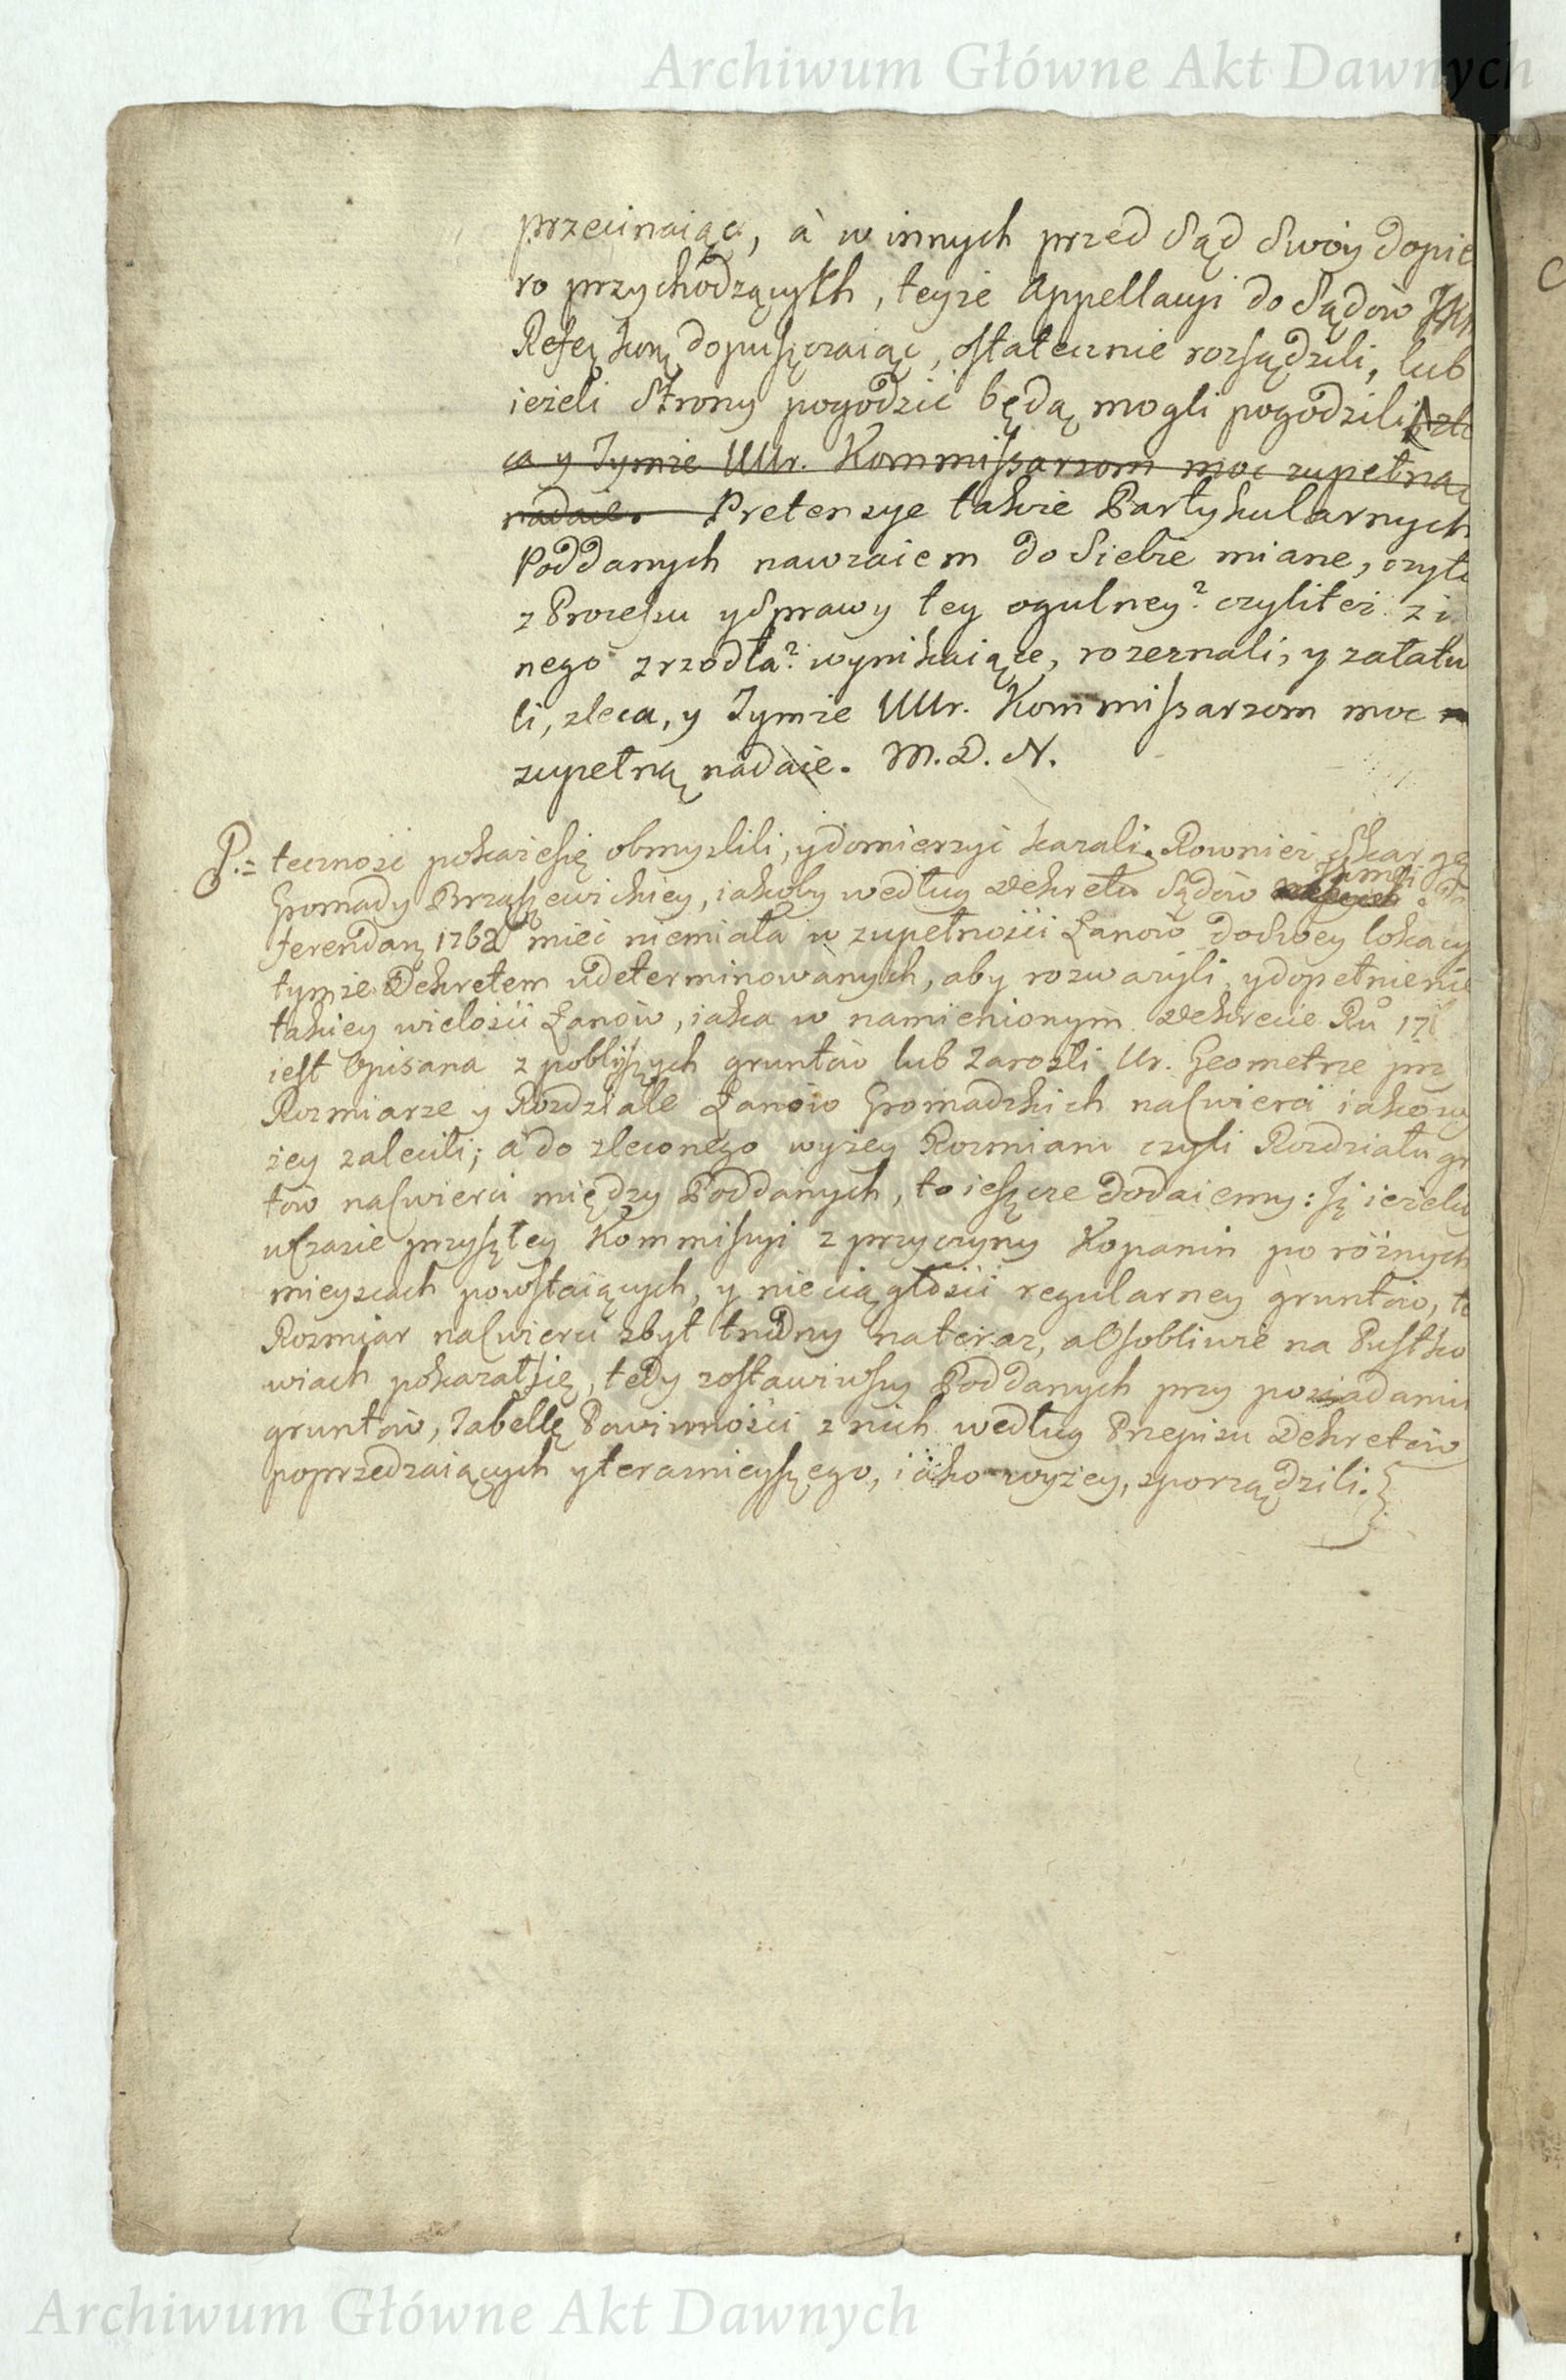 Archiwum Główne Akt Dawnych
przecinaiąc, à w innych przed Sąd Swóy dopie
ro przychodzących, teyże Appellacyi do Sądów
dopuszczaiąc, ostatecznie rozsądzili, lub
ieżeli Strony pogodzić będą mogli pogodzili, zle
ca y Tymże UUr. Kommissarzom moc zupełną
nadaie. Pretensye także Partykularnych
Poddanych nawzaiem do Siebie miane, czyli
z Processu y Sprawy tey ogulney? czyliteż z in
nego zrzodła? wynikaiące, rozeznali, y załatwi
li, zleca, y Tymże UUr. Kommissarzom moc
zupełną nadaie. M. D. N.
P.= teczność pokaże się obmyslili, y domierzyć kazali. Rownież Skargę
Gromady iakoby według Dekretu Sądów
ferendarz 1762 mieć niemiała w zupełności Łanów do Swey lokacyi
tymże Dekretem udeterminowanych, aby rozważyli, y dopełnienie
takiey wielości Łanów, iaka w namienionym Dekrecie Ru 17
iest opisana z poblizszych gruntów lub Zarośli Ur. Geometrze prz
Rozmiarze y Rozdziale Łanów Gromadzkich na Cwierci iako wy
żey zalecili; à do zleconego wyżey Rozmiaru czyli Rozdziału gr
tów na Cwierci między Poddanych, to ieszcze dodaiemy: Iż ieżeliby
w Czasie przyszłey Kommissyi z przyczyny Kopanin po różnych
mieyscach powstaiących, y nieciągłości regularney gruntów, te
Rozmiar na Cwierci zbyt trudny na teraz, a Osobliwie na Pustko
wiach pokazał się, tedy zostawiwszy Poddanych przy posiadaniu
gruntów, Tabellę Powinności z nich według Przepisu Dekretów
poprzedzaiących y terazniejszego, iako wyżey, sporządzili.
Archiwum Główne Akt Dawnych